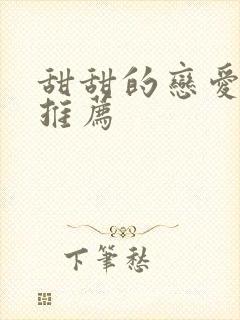 甜甜的戀愛
推薦
下筆愁